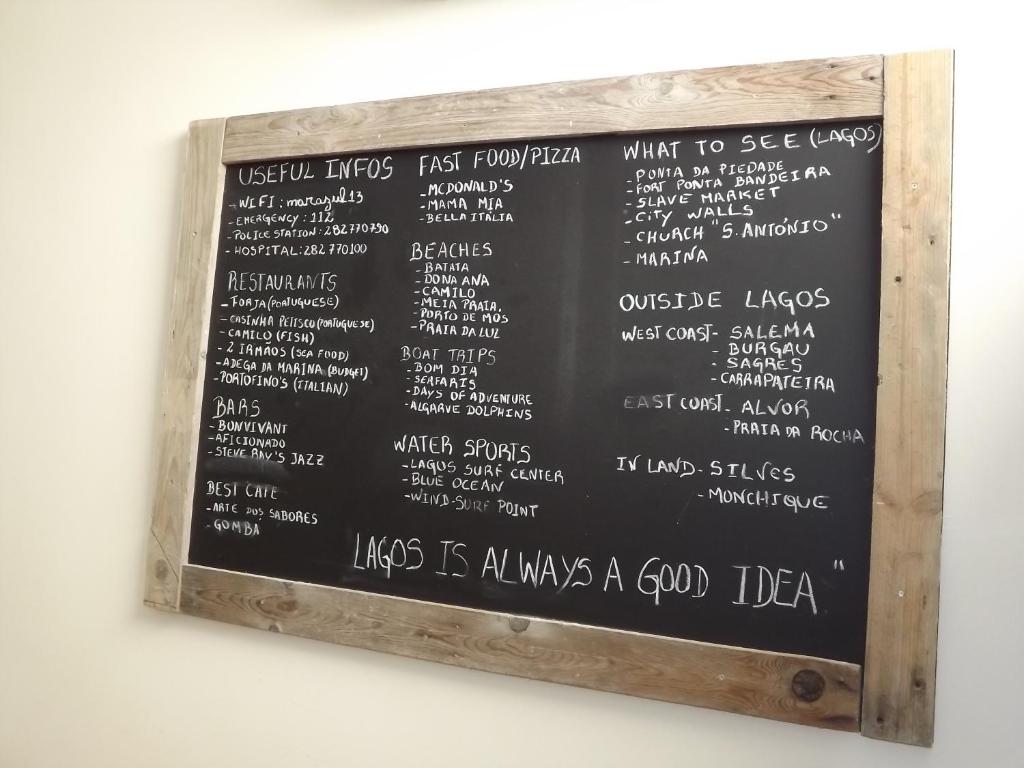 USEFUL INFOS
- WIFI : marazul13
- EMERGENCY : 112
- POLICE STATION : 282770790
- HOSPITAL : 282 770100
RESTAURANTS
- FORJA (PORTUGUESE)
- CASINHA PETISCO (PORTUGUESE)
- CAMILO (FISH)
- 2 IRMÃOS (SEA FOOD)
- ADEGA DA MARINA (BUDGET)
- PORTOFINO'S (ITALIAN)
BARS
- BONVIVANT
- AFICIONADO
- STEVE RAY'S JAZZ
BEST CAFE
- ARTE DOS SABORES
- GOMBA
FAST FOOD/PIZZA
- MCDONALD'S
- MAMA MIA
- BELLA ITÁLIA
BEACHES
- BATATA
- DONA ANA
- CAMILO
- MEIA PRAIA,
- PORTO DE MÓS
- PRAIA DA LUZ
BOAT TRIPS
- BOM DIA
- SEAFARIS
- DAYS OF ADVENTURE
- ALGARVE DOLPHINS
WATER SPORTS
- LAGOS SURF CENTER
- BLUE OCEAN
- WIND-SURF POINT
WHAT TO SEE (LAGOS)
- PONTA DA PIEDADE
- FORT PONTA BANDEIRA
- SLAVE MARKET
- CITY WALLS
- CHURCH "S. ANTÓNIO"
- MARINA
OUTSIDE LAGOS
WEST COAST - SALEMA
- BURGAU
- SAGRES
- CARRAPATEIRA
EAST COAST - ALVOR
- PRAIA DA ROCHA
IN LAND - SILVES
- MONCHIQUE
LAGOS IS ALWAYS A GOOD IDEA "